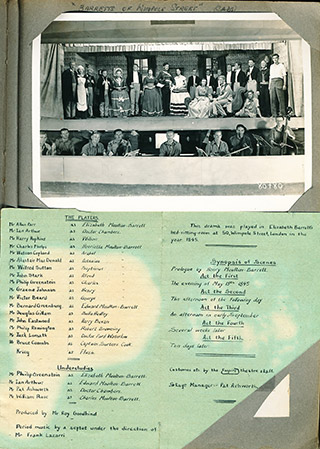 "BARRETTS OF WIMPOLE STREET"
THE PLAYERS
Mr Allan Parr as Elizabeth Moulton-Barrett
Mr Ian Arthur as Doctor Chambers
Mr Harry Hopkins as Wilson
Mr Charles Phelps as Henrietta Moulton-Barrett
Mr Watson Copland as Arabel
Mr Alastair MacDonald as Octavius
Mr Wilfred Sutton as Septimus
Mr John Stark as Alfred
Mr Philip Greenstein as Charles
Mr Graeme Johnson as Henry
Mr Victor Beard as George
Mr Bernard Greenberg as Edward Moulton-Barrett
Mr Douglas Gillam as Bella Hedley
Mr John Eastwood as Harry Bevan
Mr Philip Remington as Robert Browning
Mr Jack Lomath as Doctor Ford-Waterlow
Mr Bruce Cansdn as Captain Surtees Cook
Kring as Flush.
Understudies
Mr Philip Greenstein as Elizabeth Moulton-Barrett
Mr Ian Arthur as Edward Moulton-Barrett
Mr Pat Ashworth as Doctor Chambers.
Mr William Ross as Charles Moulton-Barrett.
Produced by Mr Roy Goodhind
Period music by a septet under the direction of
Mr. Frank Lazarri
This drama was played in Elizabeth Barrett's
bed-sitting-room at 50, Wimpole Street, London in the
year 1845.
Synopsis of Scenes
Prologue by Henry Moulton-Barrett.
Act the First
The evening of May 19th 1845
Act the Second
The afternoon of the following day
Act the Third
An afternoon in early September
Act the Fourth
Several weeks later
Act the Fifth.
Two days later
Costumes etc. by the theatre staff.
Stage Manager - Pat Ashworth